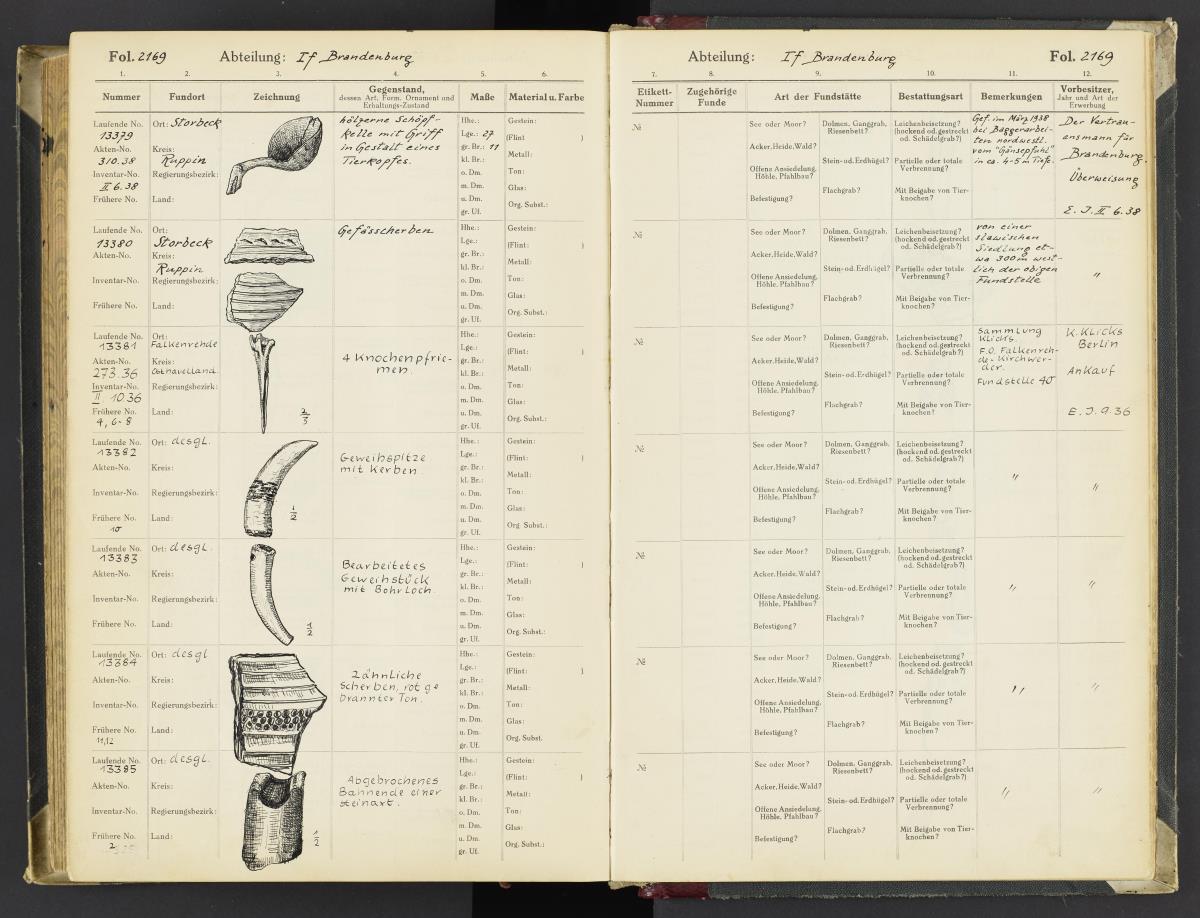 Fol. 2169 Abteilung: If Brandenburg
1. 2. 3. 4. 5. 6.
Nummer Fundort Zeichnung Gegenstand, dessen Art, Form, Ornament und Erhaltungs-Zustand Maße Material u. Farbe
Laufende No. 13379
Akten-No. 310.38
Inventar-No. II 6.38
Frühere No.
Ort: Storbeck
Kreis: Ruppin
Regierungsbezirk:
Land:
hölzerne Schöpf-
kelle mit Griff
in Gestalt eines
Tierkopfes.
Hhe.:
Lge.: 27
gr. Br.: 11
kl. Br.:
o. Dm.
m. Dm.
u. Dm.
gr. Uf.
Gestein:
(Flint )
Metall:
Ton:
Glas:
Org. Subst.:
Laufende No. 13380
Akten-No.
Inventar-No.
Frühere No.
Ort: Storbeck
Kreis: Ruppin
Regierungsbezirk:
Land:
Gefässcherben
Hhe.:
Lge.:
gr. Br.:
kl. Br.:
o. Dm.
m. Dm.
u. Dm.
gr. Uf.
Gestein:
(Flint: )
Metall:
Ton:
Glas:
Org. Subst.:
Laufende No. 13381
Akten-No. 273.36
Inventar-No. II 10.36
Frühere No. 4, 6-8
Ort: Falkenrehde
Kreis: Osthavelland
Regierungsbezirk:
Land:
2/3
4 Knochenpfrie-
men.
Hhe.:
Lge.:
gr. Br.:
kl. Br.:
o. Dm.
m. Dm.
u. Dm.
gr. Uf.
Gestein:
(Flint: )
Metall:
Ton:
Glas:
Org. Subst.:
Laufende No. 13382
Akten-No.
Inventar-No.
Frühere No. 10
Ort: desgl.
Kreis:
Regierungsbezirk:
Land:
1/2
Geweihspitze
mit Kerben.
Hhe.:
Lge.:
gr. Br.:
kl. Br.:
o. Dm.
m. Dm.
u. Dm.
gr. Uf.
Gestein:
(Flint: )
Metall:
Ton:
Glas:
Org. Subst.:
Laufende No. 13383
Akten-No.
Inventar-No.
Frühere No.
Ort: desgl.
Kreis:
Regierungsbezirk:
Land:
1/2
Bearbeitetes
Geweihstück
mit Bohrloch.
Hhe.:
Lge.:
gr. Br.:
kl. Br.:
o. Dm.
m. Dm.
u. Dm.
gr. Uf.
Gestein:
(Flint: )
Metall:
Ton:
Glas:
Org. Subst.:
Laufende No. 13384
Akten-No.
Inventar-No.
Frühere No. 11,12
Ort: desgl
Kreis:
Regierungsbezirk:
Land:
2 ähnliche
Scherben, rot ge
brannter Ton.
Hhe.:
Lge.:
gr. Br.:
kl. Br.:
o. Dm.
m. Dm.
u. Dm.
gr. Uf.
Gestein:
(Flint: )
Metall:
Ton:
Glas:
Org. Subst.
Laufende No. 13385
Akten-No.
Inventar-No.
Frühere No. 2
Ort: desgl.
Kreis:
Regierungsbezirk:
Land:
1/2
Abgebrochenes
Bahnende einer
Steinaxt.
Hhe.:
Lge.:
gr. Br.:
kl. Br.:
o. Dm.
m. Dm.
u. Dm.
gr. Uf.
Gestein:
(Flint: )
Metall:
Ton:
Glas:
Org. Subst.:
Abteilung: If Brandenburg Fol. 2169
7. 8. 9. 10. 11. 12.
Etikett-Nummer Zugehörige Funde Art der Fundstätte Bestattungsart Bemerkungen Vorbesitzer, Jahr und Art der Erwerbung
№
See oder Moor?
Acker, Heide, Wald?
Offene Ansiedelung, Höhle, Pfahlbau?
Befestigung?
Dolmen, Ganggrab, Riesenbett?
Stein- od. Erdhügel?
Flachgrab?
Leichenbeisetzung? (hockend od. gestreckt od. Schädelgrab?)
Partielle oder totale Verbrennung?
Mit Beigabe von Tier-knochen?
Gef. im März 1938
bei Baggerarbei-
ten nordwestl.
vom "Gänsepfuhl"
in ca. 4-5 m Tiefe.
Der Vertrau-
ensmann für
Brandenburg.
Überweisung
E. J. II 6.38
№
See oder Moor?
Acker, Heide, Wald?
Offene Ansiedelung, Höhle, Pfahlbau?
Befestigung?
Dolmen, Ganggrab, Riesenbett?
Stein- od. Erdhügel?
Flachgrab?
Leichenbeisetzung? (hockend od. gestreckt od. Schädelgrab?)
Partielle oder totale Verbrennung?
Mit Beigabe von Tier-knochen?
von einer
slawischen
Siedlung et-
wa 300 m west-
lich der obigen
Fundstelle
"
№
See oder Moor?
Acker, Heide, Wald?
Offene Ansiedelung, Höhle, Pfahlbau?
Befestigung?
Dolmen, Ganggrab, Riesenbett?
Stein- od. Erdhügel?
Flachgrab?
Leichenbeisetzung? (hockend od. gestreckt od. Schädelgrab?)
Partielle oder totale Verbrennung?
Mit Beigabe von Tier-knochen?
Sammlung
Klicks.
F.O. Falkenreh-
de-Kirchwer-
der.
Fundstelle 40
K. Klicks
Berlin
Ankauf
E. J. 9.36
№
See oder Moor?
Acker, Heide, Wald?
Offene Ansiedelung, Höhle, Pfahlbau?
Befestigung?
Dolmen, Ganggrab, Riesenbett?
Stein- od. Erdhügel?
Flachgrab?
Leichenbeisetzung? (hockend od. gestreckt od. Schädelgrab?)
Partielle oder totale Verbrennung?
Mit Beigabe von Tier-knochen?
" "
№
See oder Moor?
Acker, Heide, Wald?
Offene Ansiedelung, Höhle, Pfahlbau?
Befestigung?
Dolmen, Ganggrab, Riesenbett?
Stein- od. Erdhügel?
Flachgrab?
Leichenbeisetzung? (hockend od. gestreckt od. Schädelgrab?)
Partielle oder totale Verbrennung?
Mit Beigabe von Tier-knochen?
" "
№
See oder Moor?
Acker, Heide, Wald?
Offene Ansiedelung, Höhle, Pfahlbau?
Befestigung?
Dolmen, Ganggrab, Riesenbett?
Stein- od. Erdhügel?
Flachgrab?
Leichenbeisetzung? (hockend od. gestreckt od. Schädelgrab?)
Partielle oder totale Verbrennung?
Mit Beigabe von Tier-knochen?
" "
№
See oder Moor?
Acker, Heide, Wald?
Offene Ansiedelung, Höhle, Pfahlbau?
Befestigung?
Dolmen, Ganggrab, Riesenbett?
Stein- od. Erdhügel?
Flachgrab?
Leichenbeisetzung? (hockend od. gestreckt od. Schädelgrab?)
Partielle oder totale Verbrennung?
Mit Beigabe von Tier-knochen?
" "